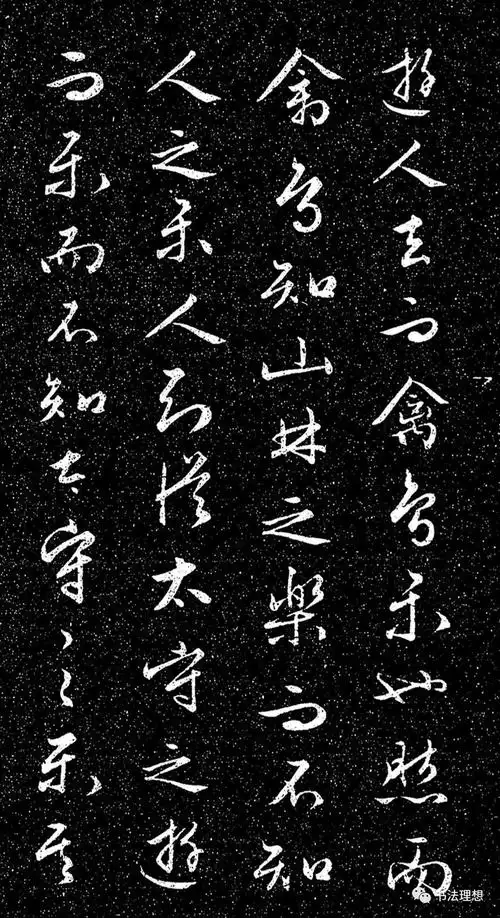 遊人去而禽鳥乐也然而
禽鳥知山林之樂而不知
人之乐人知從太守之遊
而乐而不知太守之乐其
书法理想